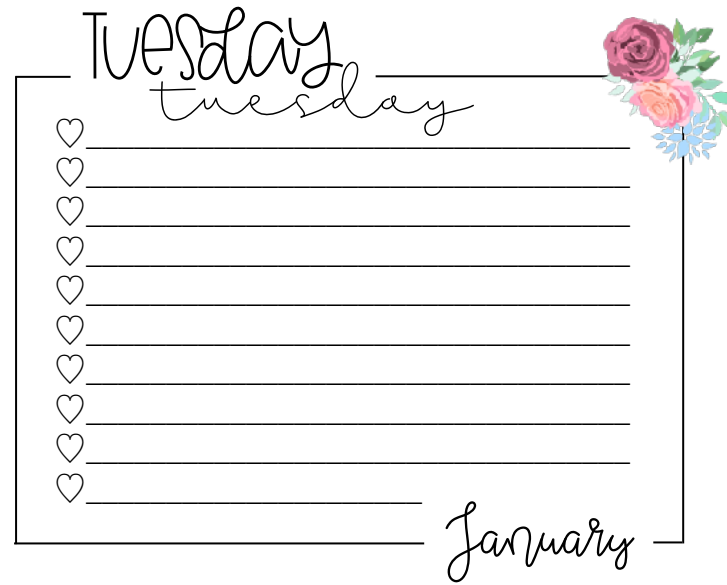 Tuesday
tuesday
January